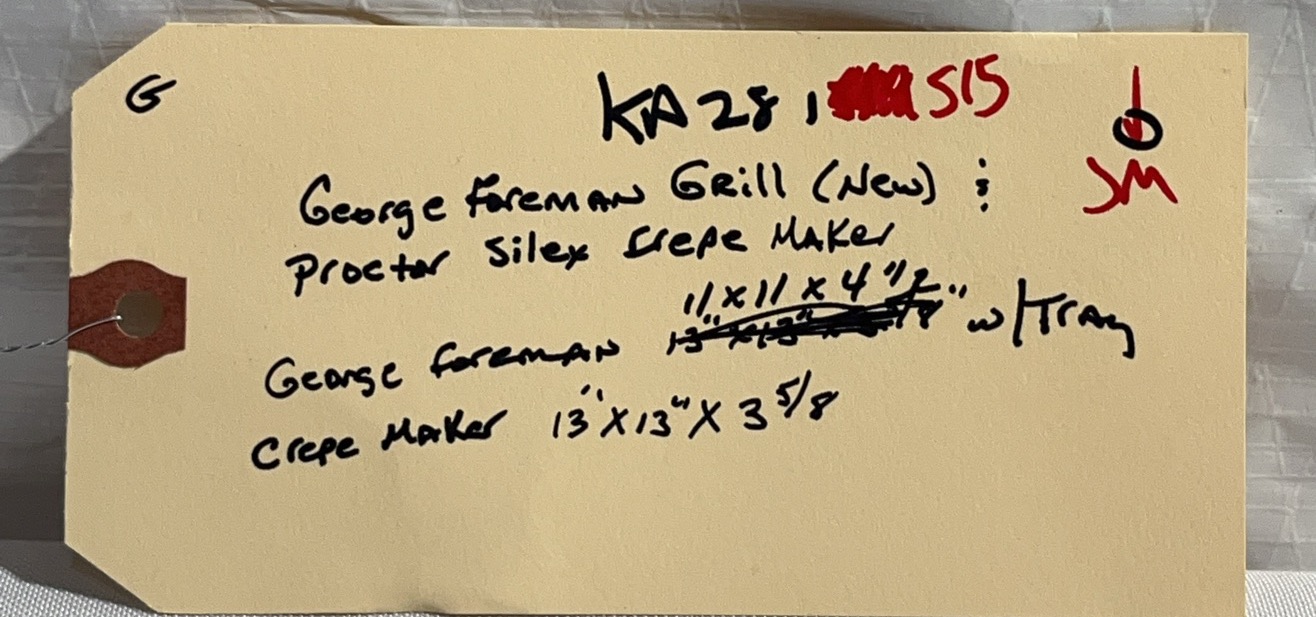 G
KA281 S15
JM
George Foreman Grill (New) &
Proctor Silex Crepe Maker
11 x 11 x 4 1/2"
George Foreman w/Tray
Crepe Maker 13" X 13" X 3 5/8